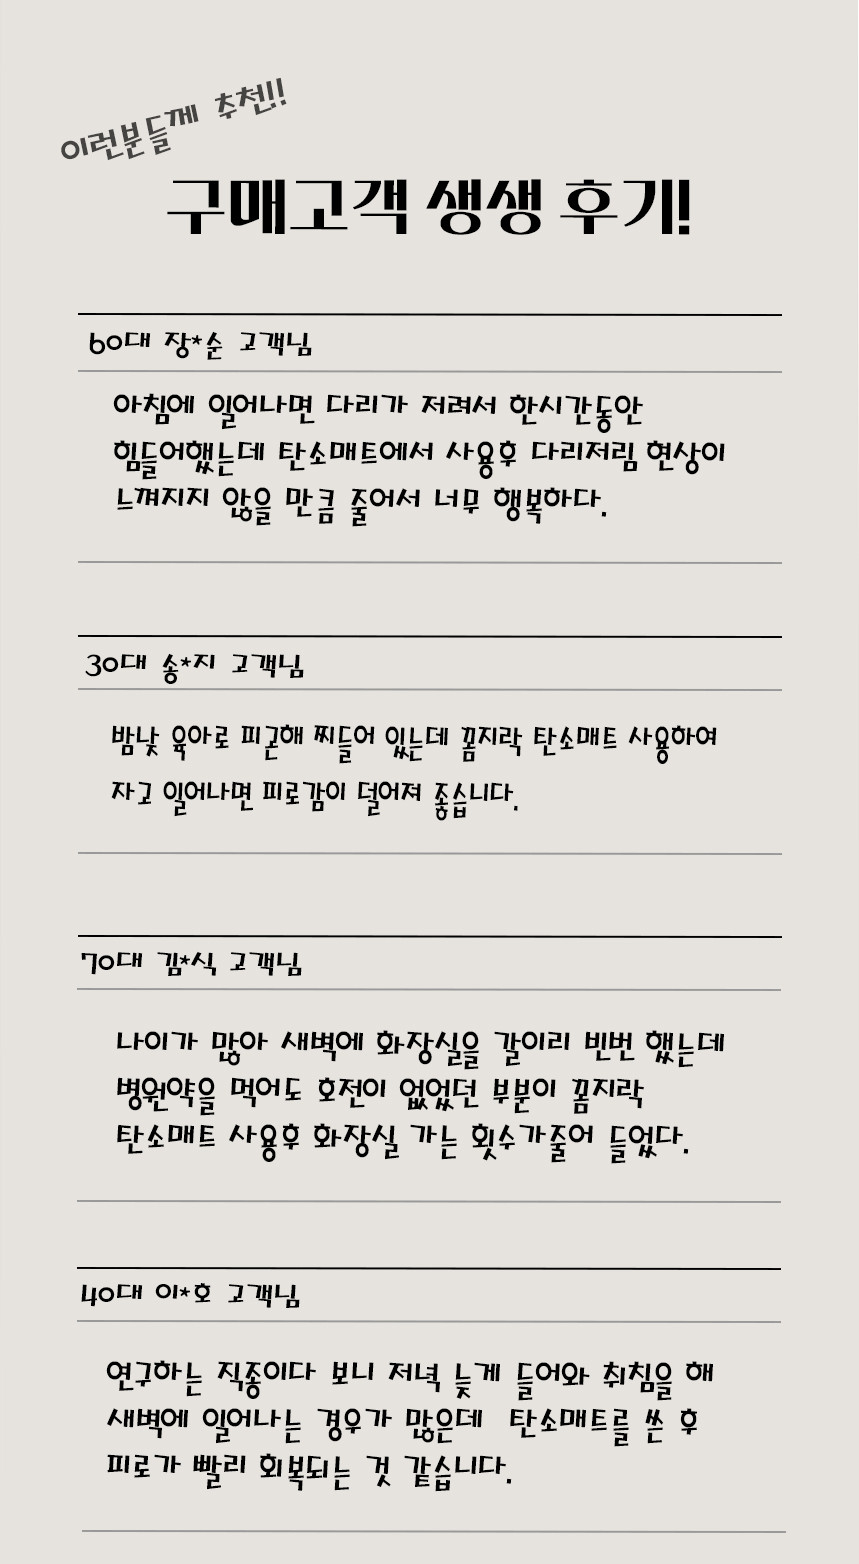 이런분들께 추천!!
구매고객 생생 후기!
60대 장*순 고객님
아침에 일어나면 다리가 저려서 한시간동안
힘들어했는데 탄소매트에서 사용후 다리저림 현상이
느껴지지 않을 만큼 줄어서 너무 행복하다.
30대 송*지 고객님
밤낮 육아로 피곤해 찌들어 있는데 꼼지락 탄소매트 사용하여
자고 일어나면 피로감이 덜어져 좋습니다.
70대 김*식 고객님
나이가 많아 새벽에 화장실을 갈이리 빈번 했는데
병원약을 먹어도 호전이 없었던 부분이 꼼지락
탄소매트 사용후 화장실 가는 횟수가줄어 들었다.
40대 이*호 고객님
연구하는 직종이다 보니 저녁 늦게 들어와 취침을 해
새벽에 일어나는 경우가 많은데 탄소매트를 쓴 후
피로가 빨리 회복되는 것 같습니다.